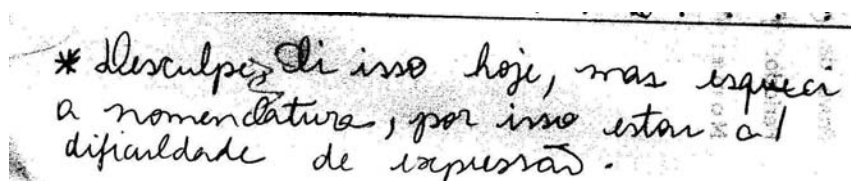 * Desculpe, li isso hoje, mas esqueci
a nomenclatura, por isso estou c/
dificuldade de expressão.